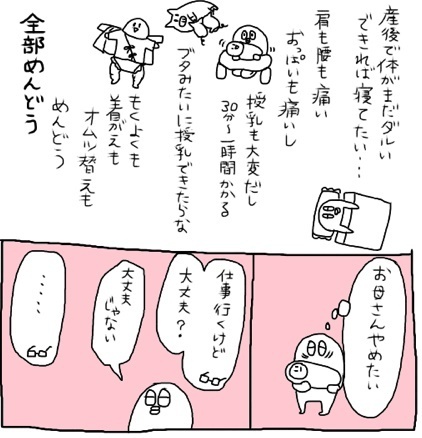 産後で体がまだダルい
できれば寝てたい…
肩も腰も痛い
おっぱいも痛いし
授乳も大変だし
30分〜一時間かかる
ブタみたいに授乳できたらな
もくよくも
着がえも
オムツ替えも
めんどう
全部めんどう
お母さんやめたい
仕事行くけど
大丈夫？
大丈夫
じゃない
・・・・